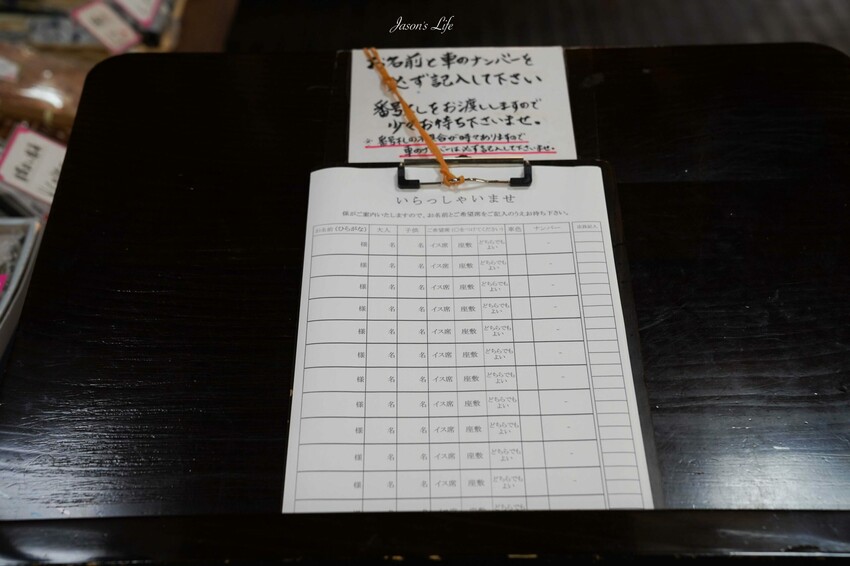 Jason's Life
お名前と車のナンバーを
必ず記入して下さい
番号札をお渡ししますので
少々お待ち下さいませ。
車のナンバーは必ず記入して下さいませ。
いらっしゃいませ
係がご案内いたしますので、お名前とご希望席をご記入のうえお待ち下さい。
お名前(ひらがな) 大人 子供 ご希望席(○をつけてください) 車色 ナンバー
様 名 名 イス席 座敷 どちらでもよい -
様 名 名 イス席 座敷 どちらでもよい -
様 名 名 イス席 座敷 どちらでもよい -
様 名 名 イス席 座敷 どちらでもよい -
様 名 名 イス席 座敷 どちらでもよい -
様 名 名 イス席 座敷 どちらでもよい -
様 名 名 イス席 座敷 どちらでもよい -
様 名 名 イス席 座敷 どちらでもよい -
様 名 名 イス席 座敷 どちらでもよい -
様 名 名 イス席 座敷 どちらでもよい -
様 名 名 イス席 座敷 どちらでもよい -